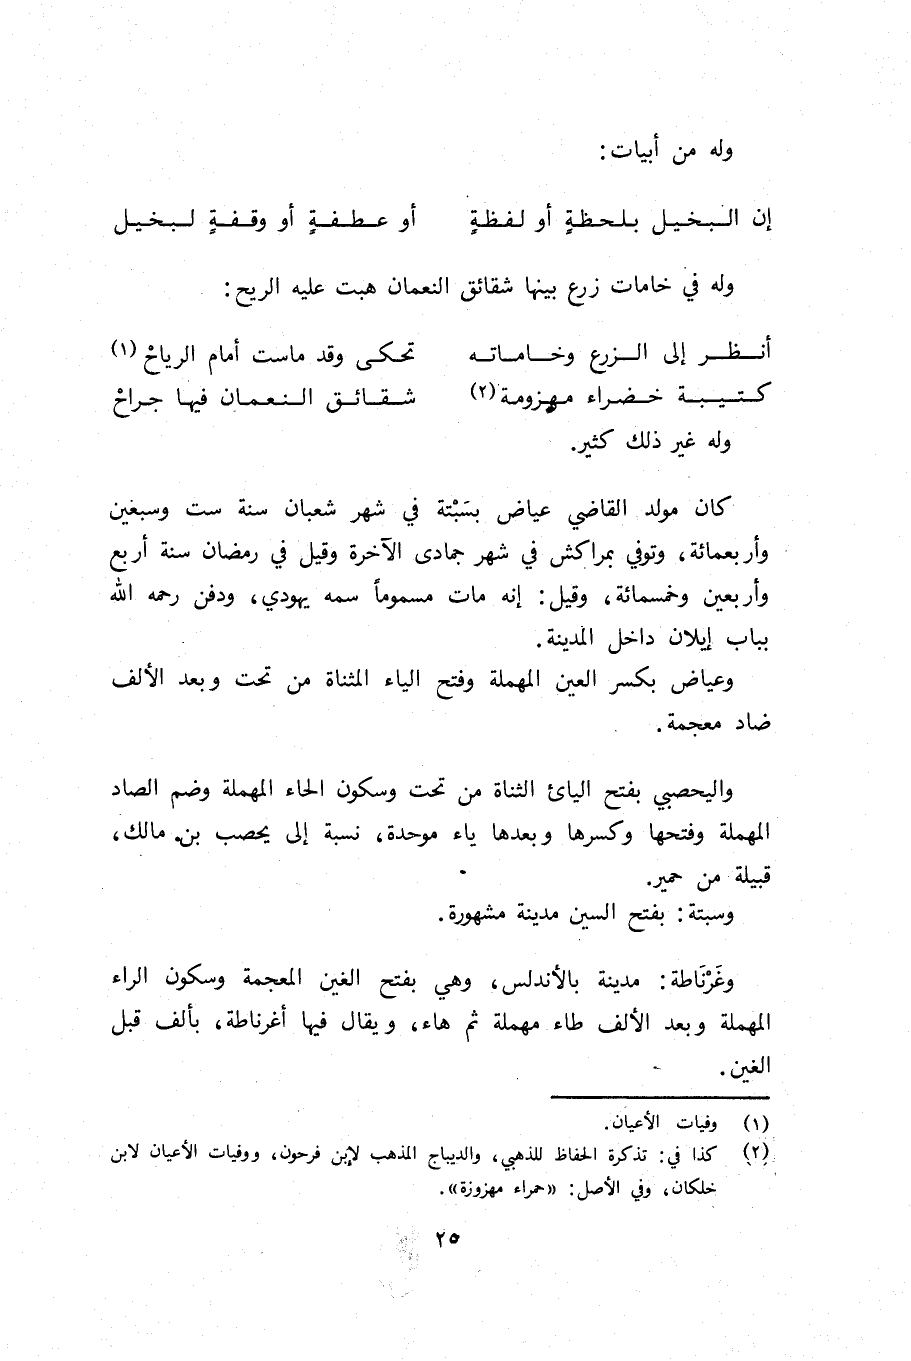 وله من أبيات:
إن البخيل بلحظةٍ أو لفظةٍ أو عطفةٍ أو وقفةٍ لبخيل
وله في خامات زرع بينها شقائق النعمان هبت عليه الريح:
أنظر إلى الزرع وخاماته تحكى وقد ماست أمام الرياحْ (١)
كتيبة خضراء مهزومة (٢) شقائق النعمان فيها جراحْ
وله غير ذلك كثير.
كان مولد القاضي عياض بسَبْتة في شهر شعبان سنة ست وسبغين
وأربعمائة، وتوفي بمراكش في شهر جمادى الآخرة وقيل في رمضان سنة أربع
وأربعين وخمسمائة، وقيل: إنه مات مسموماً سمه يهودي، ودفن رحمه الله
بباب إيلان داخل المدينة.
وعياض بكسر العين المهملة وفتح الياء المثناة من تحت وبعد الألف
ضاد معجمة.
واليحصبي بفتح اليائ الثناة من تحت وسكون الحاء المهملة وضم الصاد
المهملة وفتحها وكسرها وبعدها ياء موحدة، نسبة إلى يحصب بن مالك،
قبيلة من حمير.
وسبتة: بفتح السين مدينة مشهورة.
وغَرْنَاطة: مدينة بالأندلس، وهي بفتح الغين المعجمة وسكون الراء
المهملة وبعد الألف طاء مهملة ثم هاء، ويقال فيها أغرناطة، بألف قبل
الغين.
(١) وفيات الأعيان.
(٢) كذا في: تذكرة الحفاظ للذهبي، والديباج المذهب لإبن فرحون، ووفيات الأعيان لابن
خلكان، وفي الأصل: «حمراء مهزوزة».
٢٥